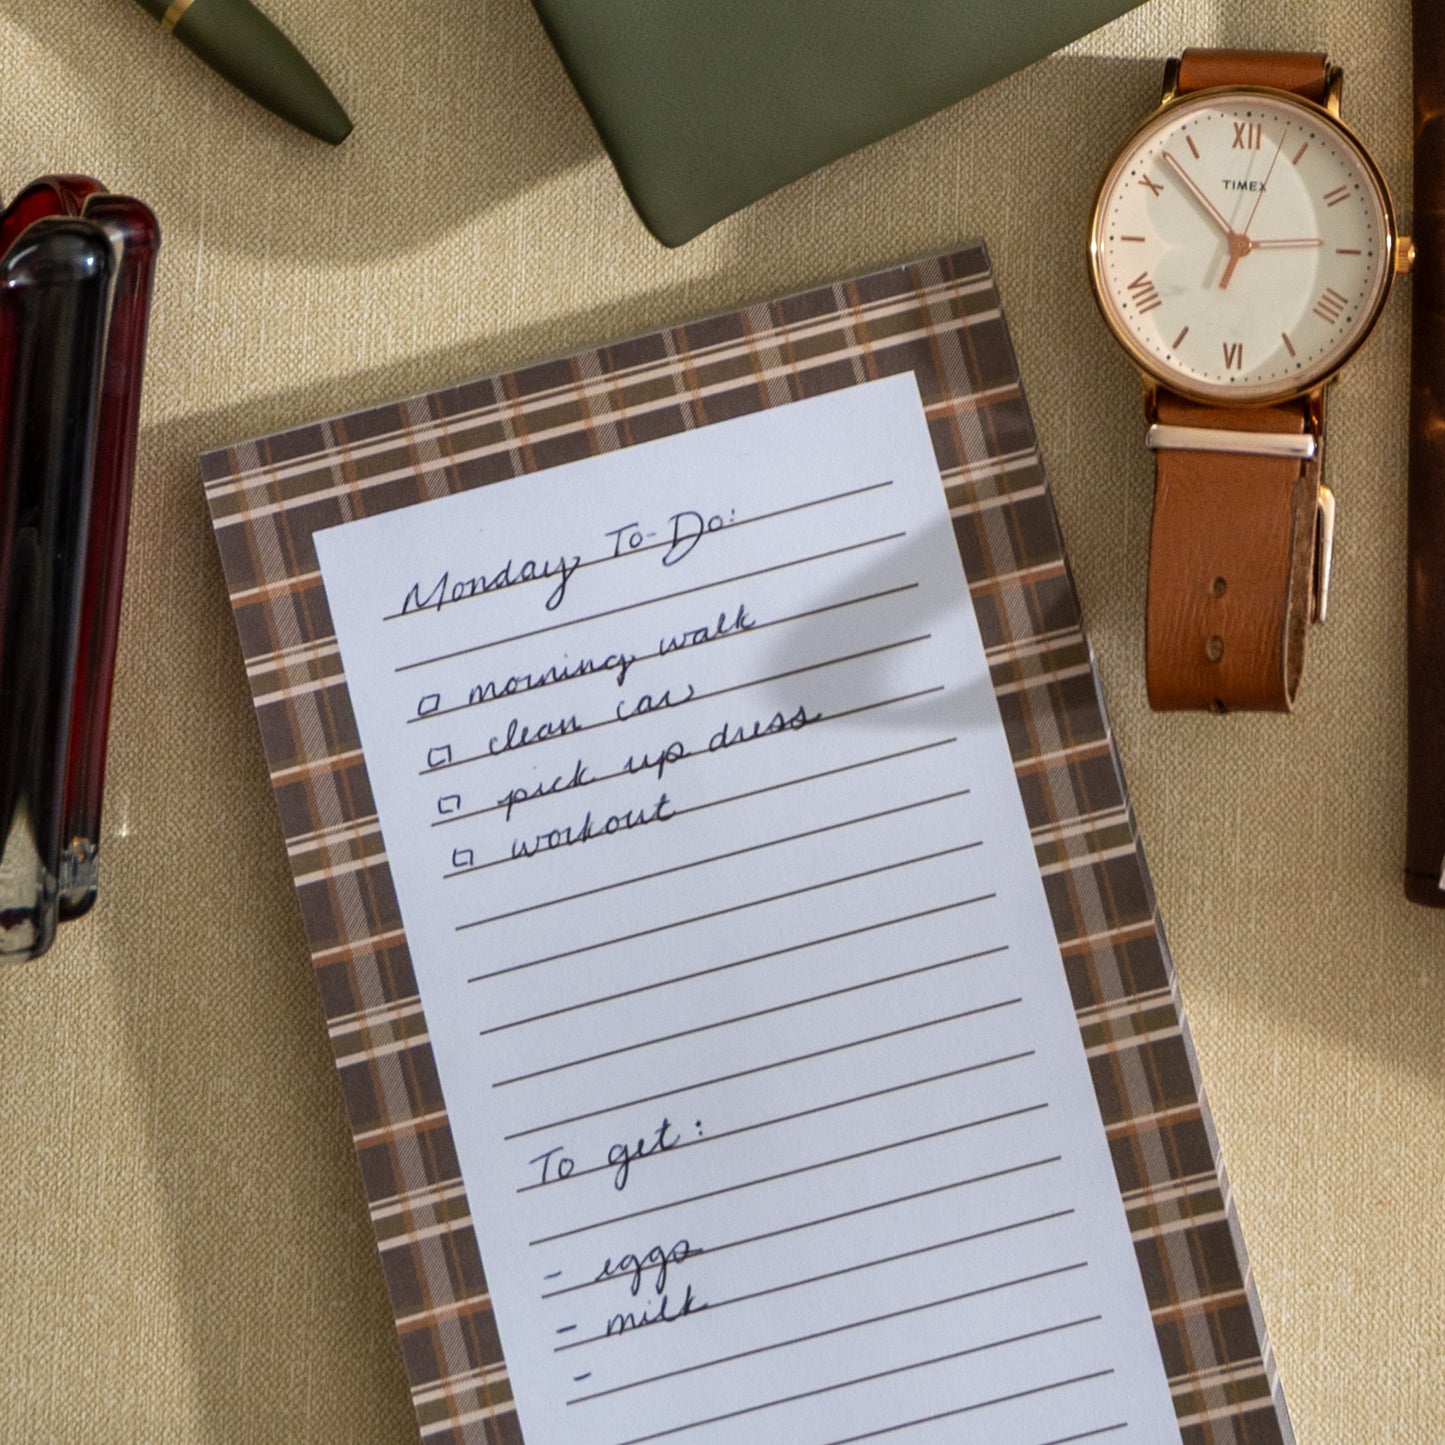 Monday To-Do:
□ morning walk
□ clean car
□ pick up dress
□ workout
To get:
- eggs
- milk
-
XII
TIMEX
X
VIII
VI
IIII
II